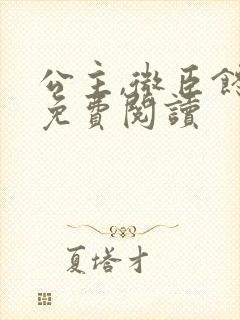 公主,微臣
免費閱讀
夏塔才